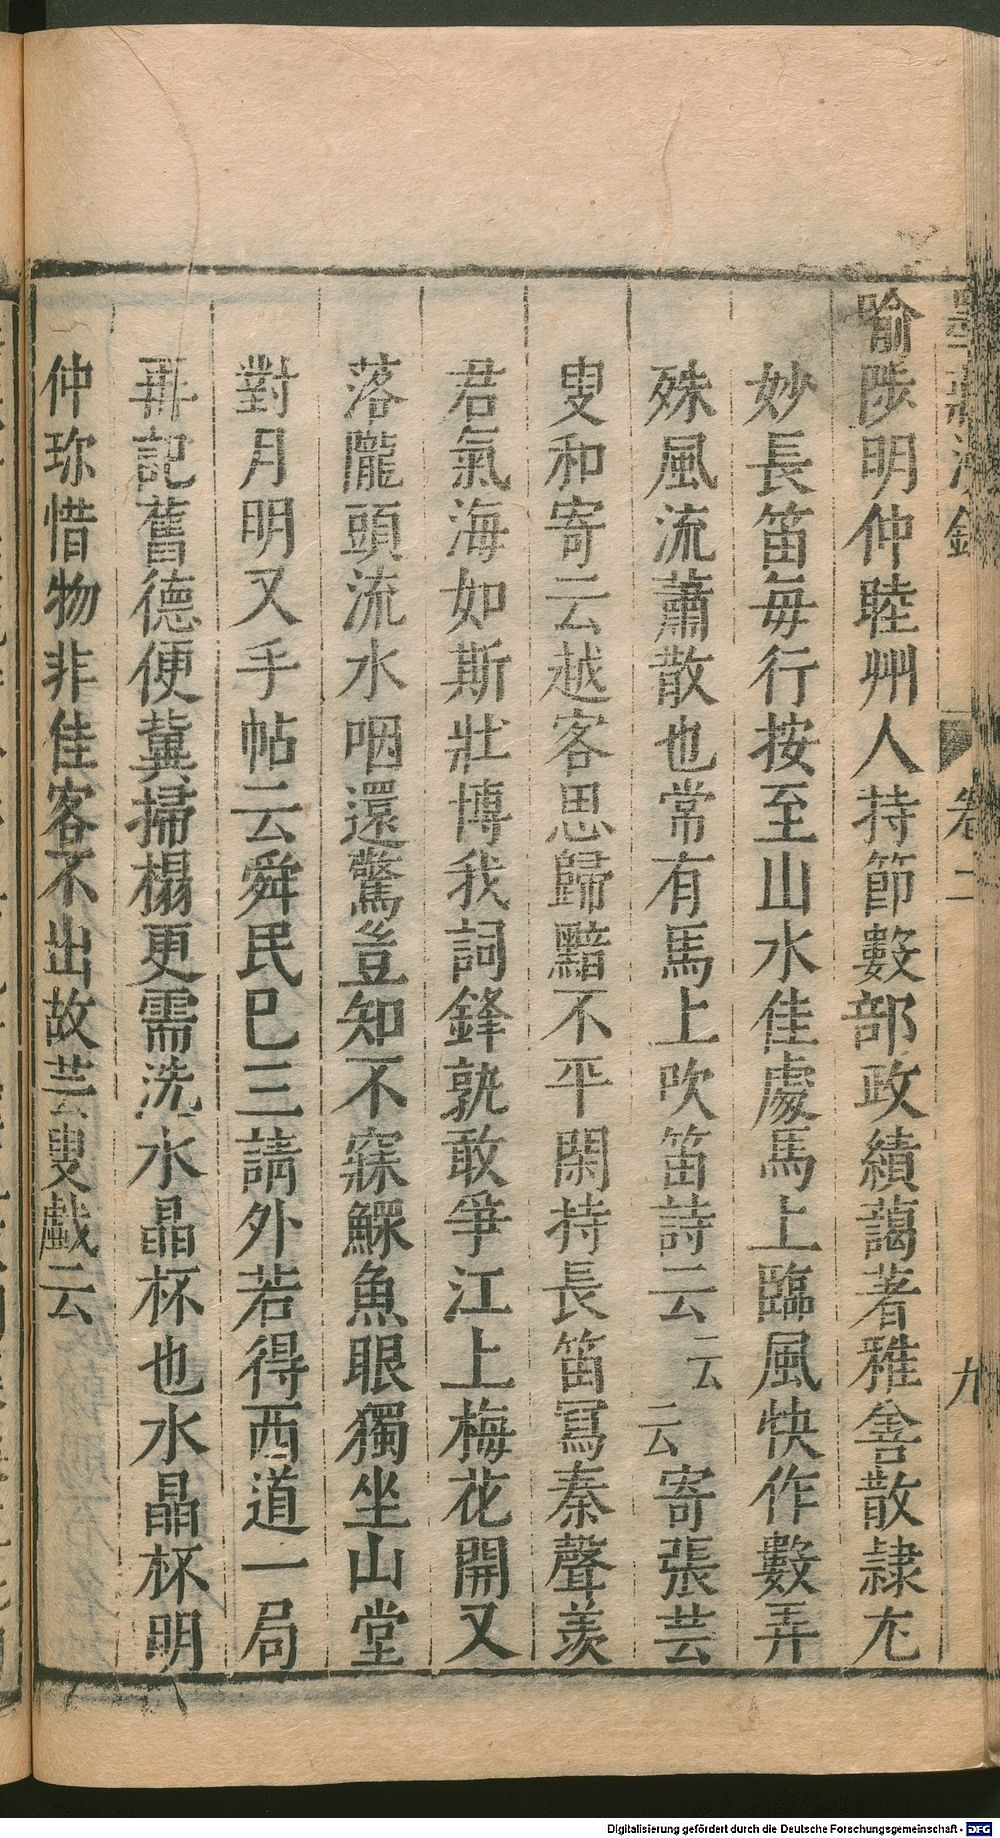 墨莊漫錄 卷二 九
喻陟明仲睦州人持節數部政績藹著雅善散隷尤
妙長笛每行按至山水佳處馬上臨風快作數弄
殊風流蕭散也常有馬上吹笛詩云云云寄張芸
叟和寄云越客思歸黯不平閑持長笛冩秦聲羨
君氣海如斯壯博我詞鋒孰敢爭江上梅花開又
落隴頭流水咽還驚豈知不寐鰥魚眼獨坐山堂
對月明又手帖云舜民巳三請外若得西道一局
再記舊德便冀掃榻更需洗水晶杯也水晶杯明
仲珎惜物非佳客不出故芸叟戲云
Digitalisierung gefördert durch die Deutsche Forschungsgemeinschaft - DFG